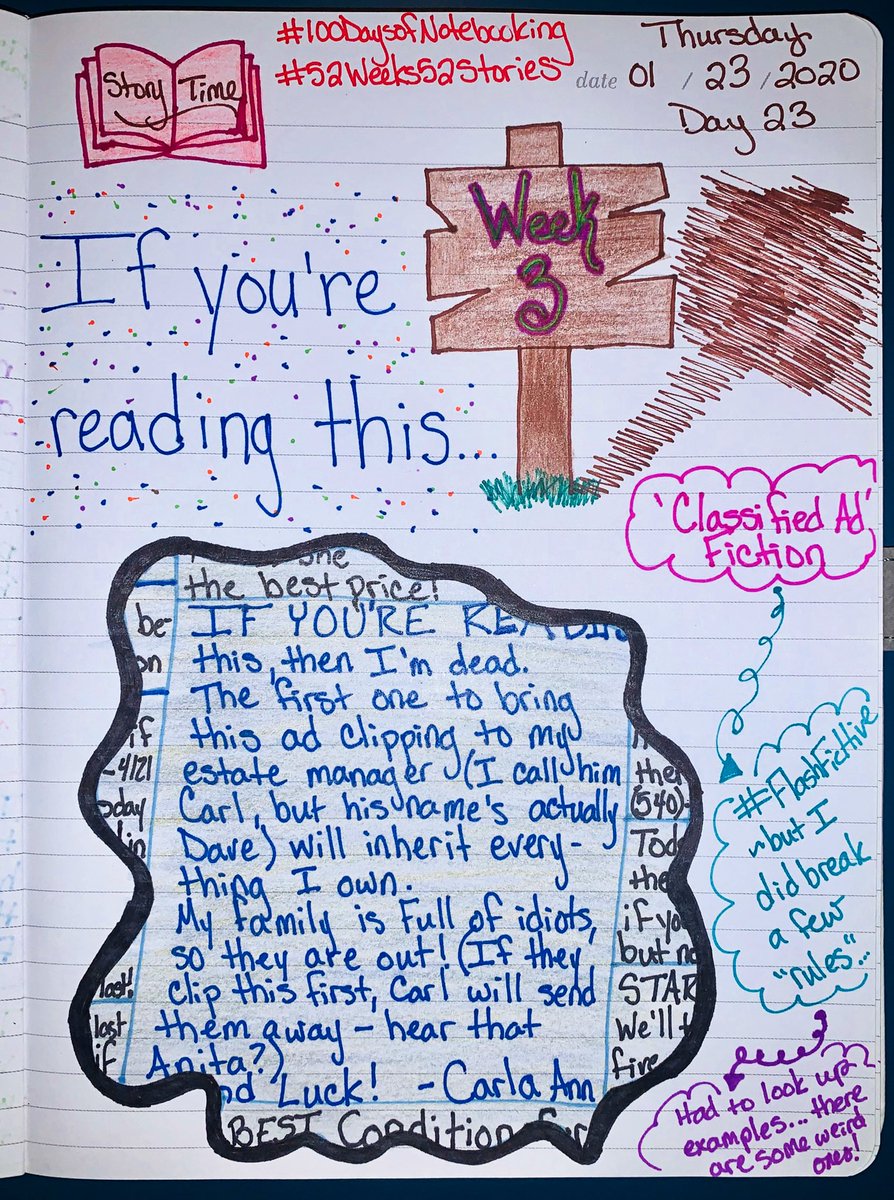 #100DaysofNotebooking
#52Weeks52Stories
Thursday
date 01 / 23 / 2020
Day 23
Story Time
Week
3
If you're
reading this...
'Classified Ad'
Fiction
the best price!
IF YOU'RE READIN
this, then I'm dead.
The first one to bring
this ad clipping to my
estate manager (I call him
Carl, but his name's actually
Dave) will inherit every-
thing I own.
My family is full of idiots,
so they are out! (If they
clip this first, Carl will send
them away - hear that
Anita?)
Luck! - Carla Ann
BEST Condition
be-
on
if
-4121
oday
last!
last
if
ther
(540)-
Tod
the
if yo
but no
STAR
We'll t
five
#FlashFicHive
~but I
did break
a few
"rules"...
Had to look up
examples... there
are some weird
ones!